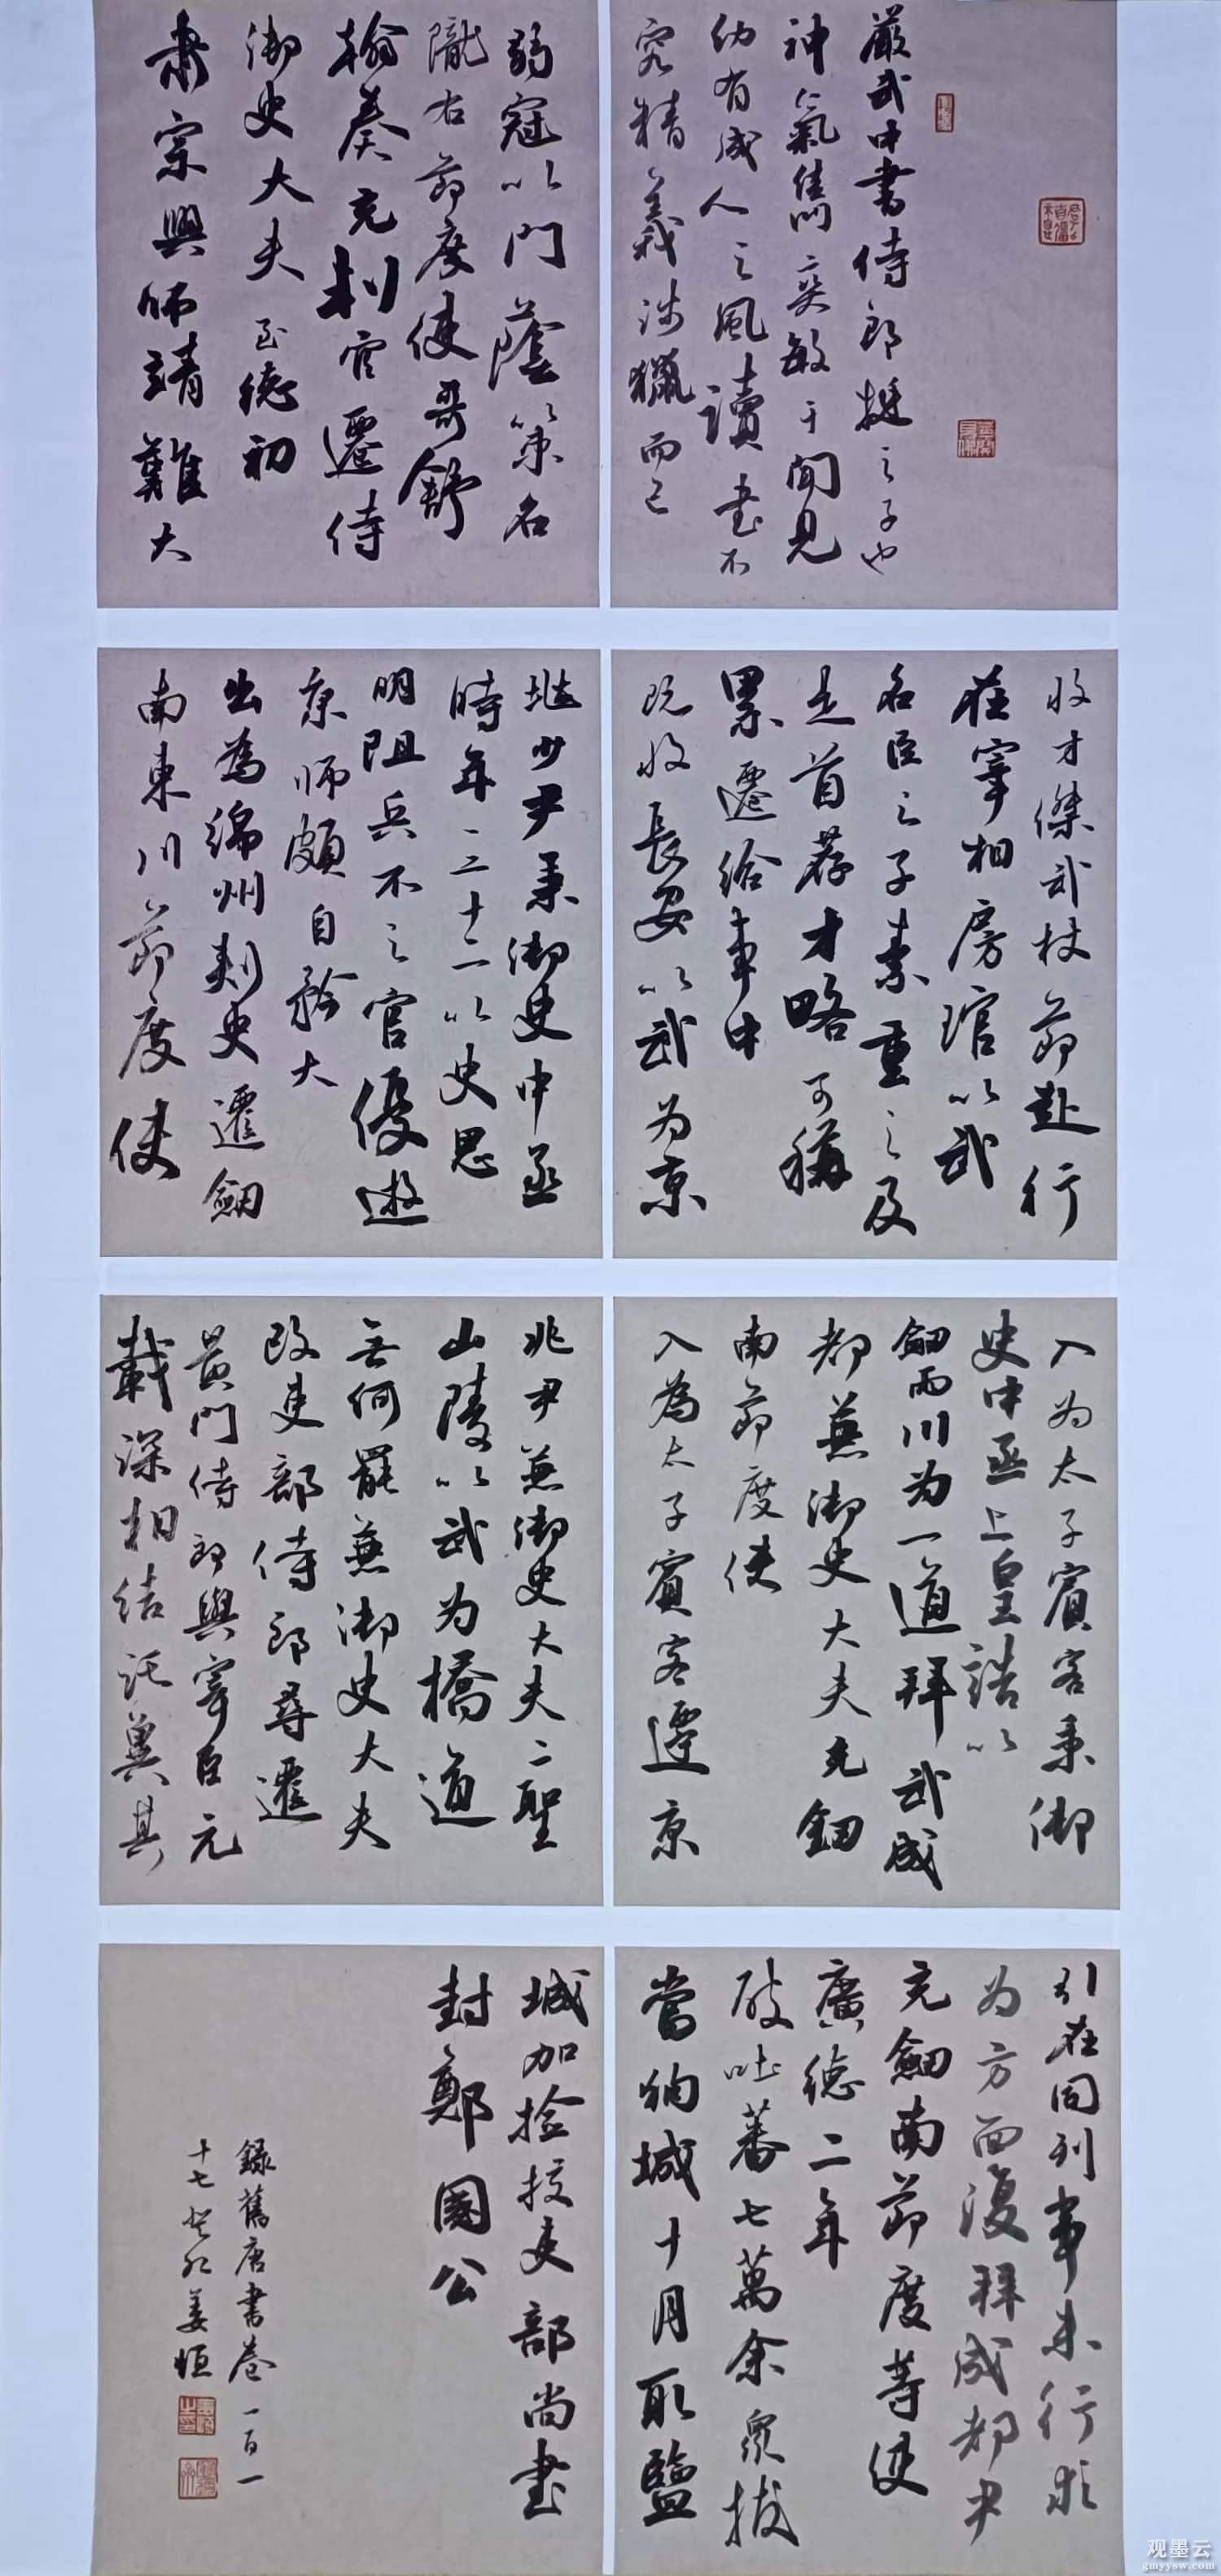 嚴武中書侍郎挺之子也
神氣雋爽敏于聞見
幼有成人之風讀書不
究精義涉獵而已
弱冠以門蔭策名
隴右節度使哥舒
翰奏充判官遷侍
御史大夫至德初
肅宗興師靖難大
收才傑武杖節赴行
在宰相房琯以武
名臣之子素重之及
是首荐才略可稱
累遷給事中
既收長安以武为京
兆少尹兼御史中丞
時年三十二以史思
明阻兵不之官優遊
京師頗自矜大
出為綿州刺史遷劒
南東川節度使
入为太子賓客兼御
史中丞上皇誥以
劒兩川为一道拜武成
都兼御史大夫充劒
南節度使
入為太子賓客遷京
兆尹兼御史大夫二聖
山陵以武为橋道
无何罷兼御史大夫
改吏部侍郎尋遷
黃門侍郎與宰臣元
載深相結託冀其
引在同列事未行求
为方面復拜成都尹
充劒南節度等使
廣德二年
破吐蕃七萬余眾拔
當狗城十月取鹽
城加捡挍吏部尚書
封鄭國公
錄舊唐書卷一百一
十七 癸卯姜恒
观墨云
gmyysw.com